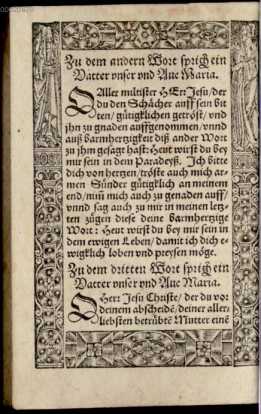 Zu dem andern Wort sprich ein
Vatter vnser vnd Aue Maria.
O Aller miltister HErr Jesu/der
du den Schächer auff sein bit
ten/ gütigklichen getröst/ vnd
jhn zu gnaden auffgenommen/vnnd
auß barmhertzigkeit diß ander Wort
zu jhm gesagt hast: Heut wirst du bey
mir sein in dem Paradeyß. Ich bitte
dich von hertzen/tröste auch mich ar-
men Sünder gütigklich an meinem
end/nim̃ mich auch zu genaden auff/
vnnd sag auch zu mir in meinen letz-
ten zügen diese deine barmhertzige
Wort: Heut wirst du bey mir sein in
dem ewigen Leben/damit ich dich e-
wigklich loben vnd preysen möge.
Zu dem dritten Wort sprich ein
Vatter vnser vnd Aue Maria.
O Herr Jesu Christe/ der du vor
deinem abscheidẽ/deiner aller-
liebsten betrübtẽ Mutter einẽ